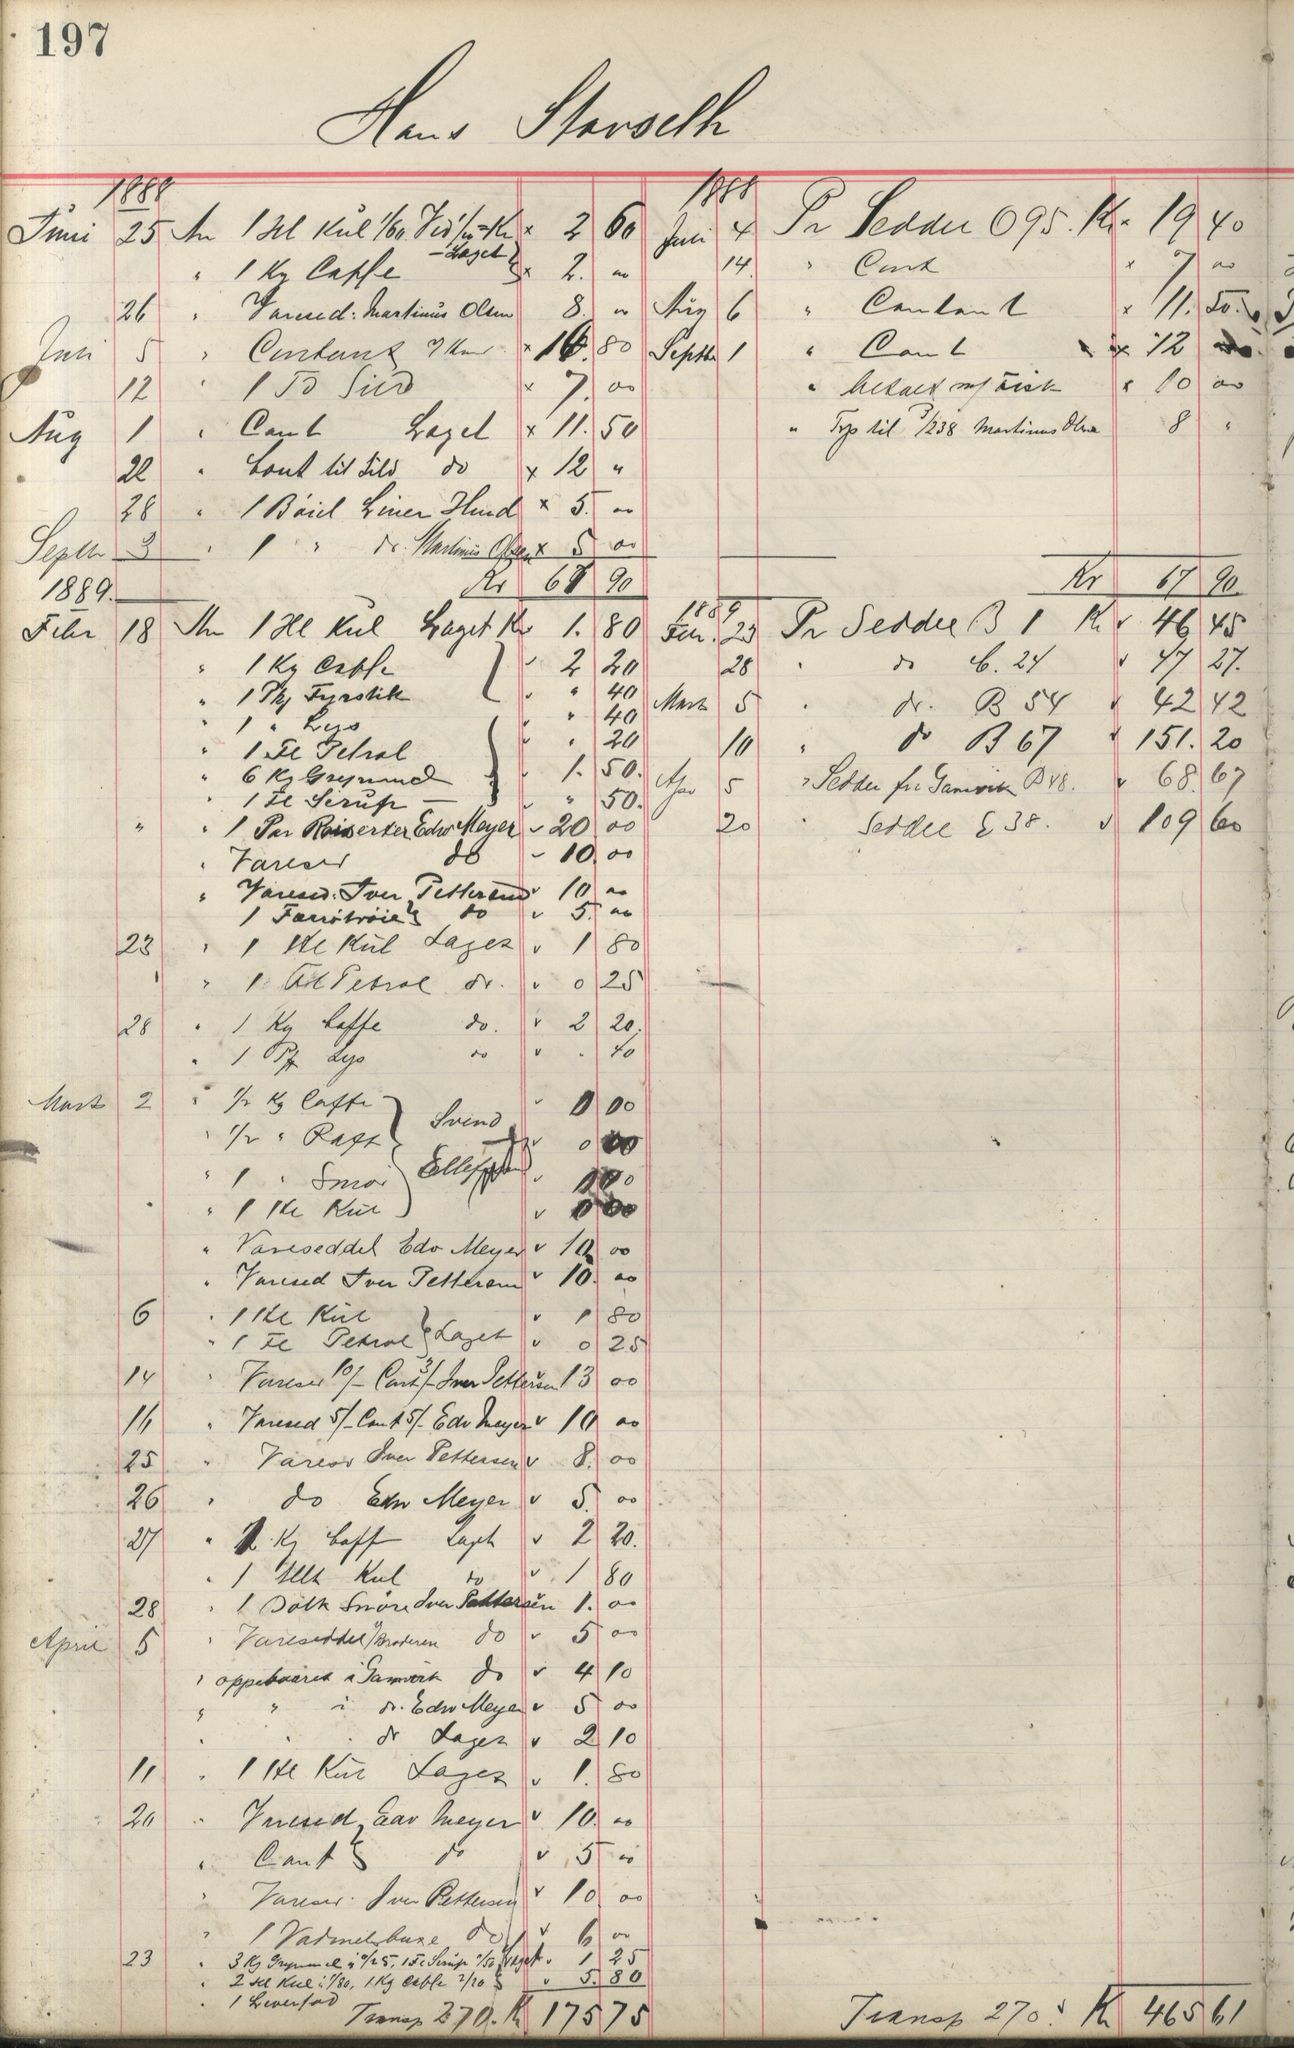 197
Hans Starselh
1888
Juni 25 An 1 Hl Kul 1/60 Ved 1/- Kr x 2 60
" 1 Kg Caffe - Laget x 2. 00
26 " Varesed: Martinus Olsen 8. 00
Juli 5 " Contant x 16. 80
12 " 1 Td Sild x 7. 00
Aug 1 " Cont Laget x 11. 50
22 " Cont til Sild do x 12 "
28 " 1 Böiel Liner Hmd x 5. 00
Septbr 3 " 1 " do. Martinus Olsen x 5 00
Kr 67 90
1889.
Febr 18 An 1 Hl Kul Laget Kr 1. 80
" 1 Kg Caffe v 2 20
" 1 Pk Fyrstik v " 40
" 1 " Lys v " 40
" 1 Fl Petrol v " 20
" 6 Kg Grynmel v 1. 50.
" 1 Fl Sirup - v " 50.
" " 1 Par Edv Meyer v 20 00
" Varesed do v 10. 00
" Varesed. Iver Pettersen v 10 00
1 do v 5. 00
23 " 1 Hl Kul Laget v 1 80
" 1 Fl Petrol do. v 0 25
28 " 1 Kg Caffe do. v 2 20.
" 1 Pk Lys do v " 40
Marts 2 " 1/2 Kg Caffe v 0 00
" 1/2 " Svend v 0 00
" 1 " Smör Ellefsen v 0 00
" 1 Hl Kul v 0 00
" Vareseddel Edv Meyer v 10 00
" Varesed Iver Pettersen v 10. 00
6 " 1 Hl Kul v 1 80
" 1 Fl Petrol Laget v 0 25
14 " Varesed 10/- Cont 3/- Iver Pettersen 13 00
16 " Varesed 5/- Cont 5/- Edv Meyer v 10 00
25 " Varesed Iver Pettersen v 8. 00
26 " do Edv Meyer v 5. 00
27 " 1 Kg Caff Laget v 2 20.
" 1 Hl Kul do v 1 80
28 " 1 Snöre Iver Pettersen 1. 00
April 5 " Vareseddel Broderen do v 5 00
" oppebaaret i Gamvik do v 4 10
" " i do. Edv Meyer v 5 00
" " " do Laget v 2 10
11 " 1 Hl Kul Laget v 1. 80
20 " Varesed Edv Meyer v 10. 00
" Cont do v 5 00
" Varesed. Iver Pettersen v 10. 00
" 1 Vadmelsbuxe do v 6 00
23 " 3 Kg Grynmel a 0/25, 1 Fl Sirup 0/50 Laget v 1 25
" 2 Hl Kul a 1/80, 1 Kg Caffe 2/20 v 5. 80
" 1 Leverfad
Transp 270. Kr 175 75
1888
Juli 4 Pr Seddel 095. Kr x 19 40
14. " Cont x 7 00
Aug 6 " Contant x 11. 50.
Septbr 1 " Cont x 12
" betalt m/ Fisk x 10 00
" Trp til P/238 Martinus Olsen 8 "
Kr 67 90
1889
Febr. 23 Pr Seddel B 1 Kr v 46 45
28 " do C. 24 v 47 27.
Marts 5 " do. B 54 v 42 42
10 " do B 67 v 151. 20
Apr 5 " Seddel fra Gamvik v 68. 67
20 " Seddel E 38. v 109 60
Transp 270. Kr 465 61